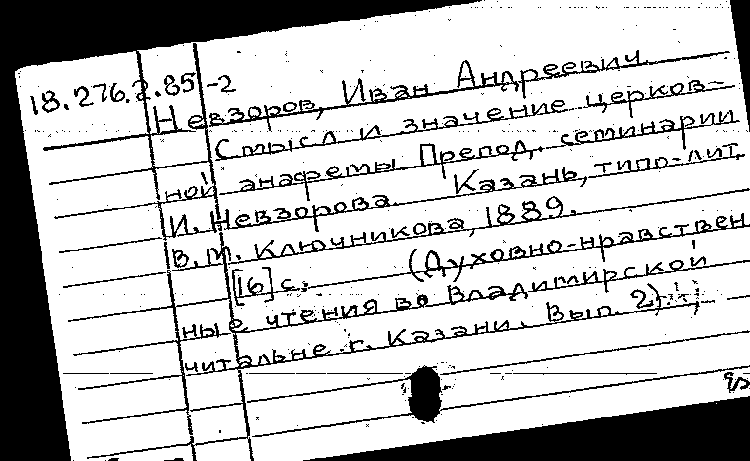 18.276.2.85-2
Невзоров, Иван Андреевич.
Смысл и значение церков-
ной анафемы. Препод. семинарии
И. Невзорова. Казань, типо-лит.
В. М. Ключникова, 1889.
[16] с. (Духовно-нравствен
ные чтения во Владимирской
читальне г. Казани. Вып. 2).